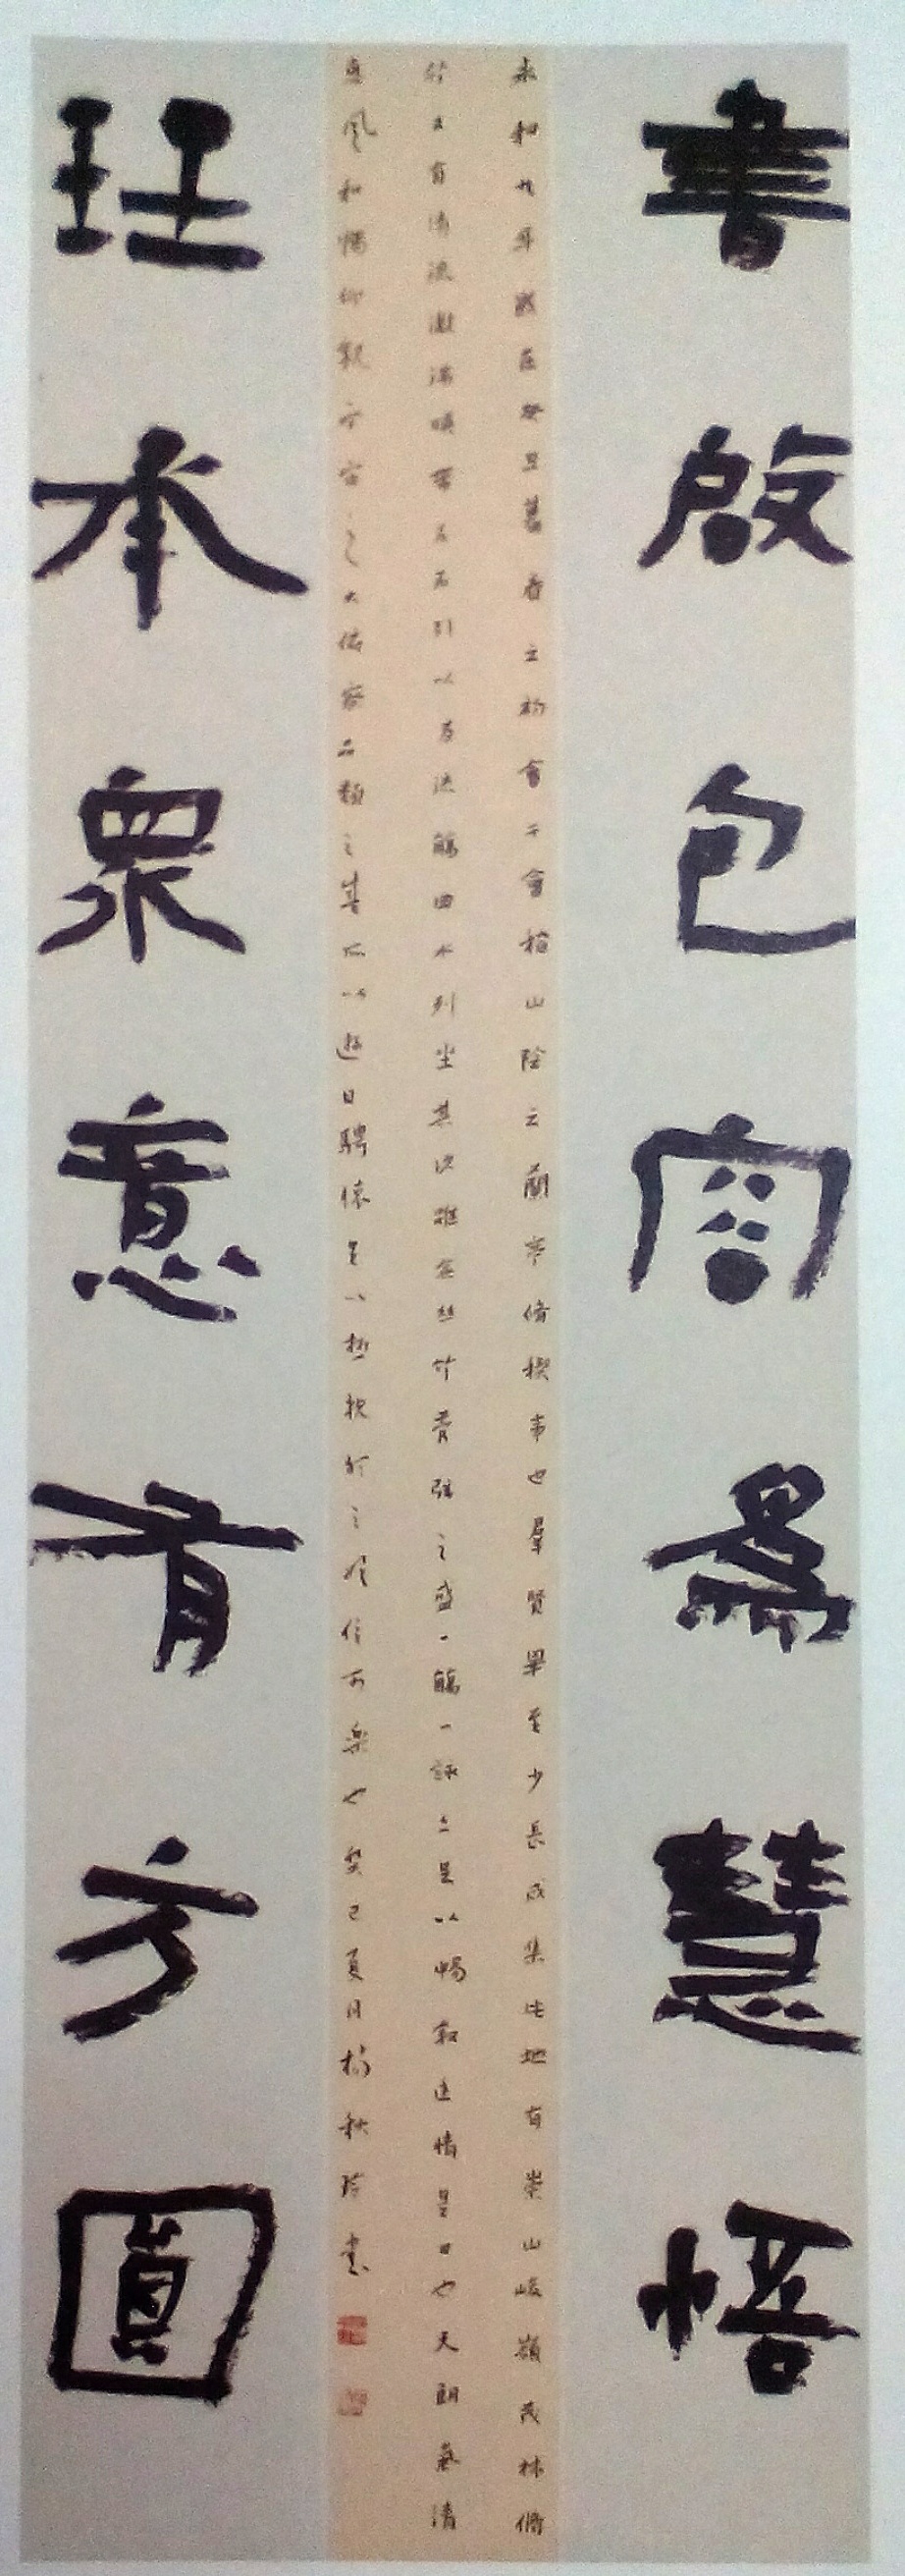 書啟包容為慧悟
永和九年歲在癸丑暮春之初會于會稽山陰之蘭亭脩禊事也羣賢畢至少長咸集此地有崇山峻嶺茂林脩
竹又有清流激湍暎帶左右引以為流觴曲水列坐其次雖無絲竹管弦之盛一觴一詠亦足以暢敘幽情是日也天朗氣清
惠風和暢仰觀宇宙之大俯察品類之盛所以遊目騁懷足以極視聽之娛信可樂也癸巳夏月楊秋玲書
玨本眾意有方圓